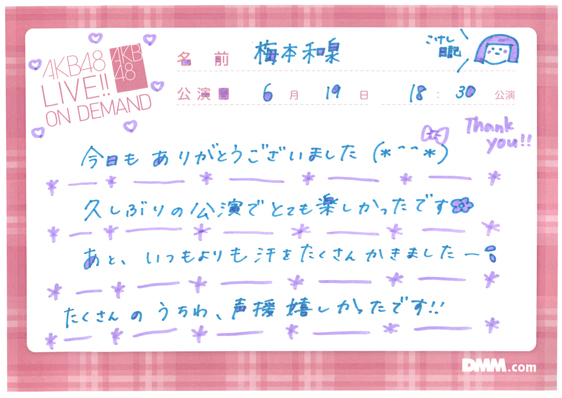 AKB48
LIVE!!
ON DEMAND
AKB
48
名前 梅本和泉
こけし
日記
公演日 6月19日 18:30公演
Thank
you!!
今日も ありがとうございました (*^^*)
久しぶりの公演でとても楽しかったです
あと、いつもよりも汗をたくさんかきましたー
たくさんの うちわ、声援 嬉しかったです!!
DMM.com